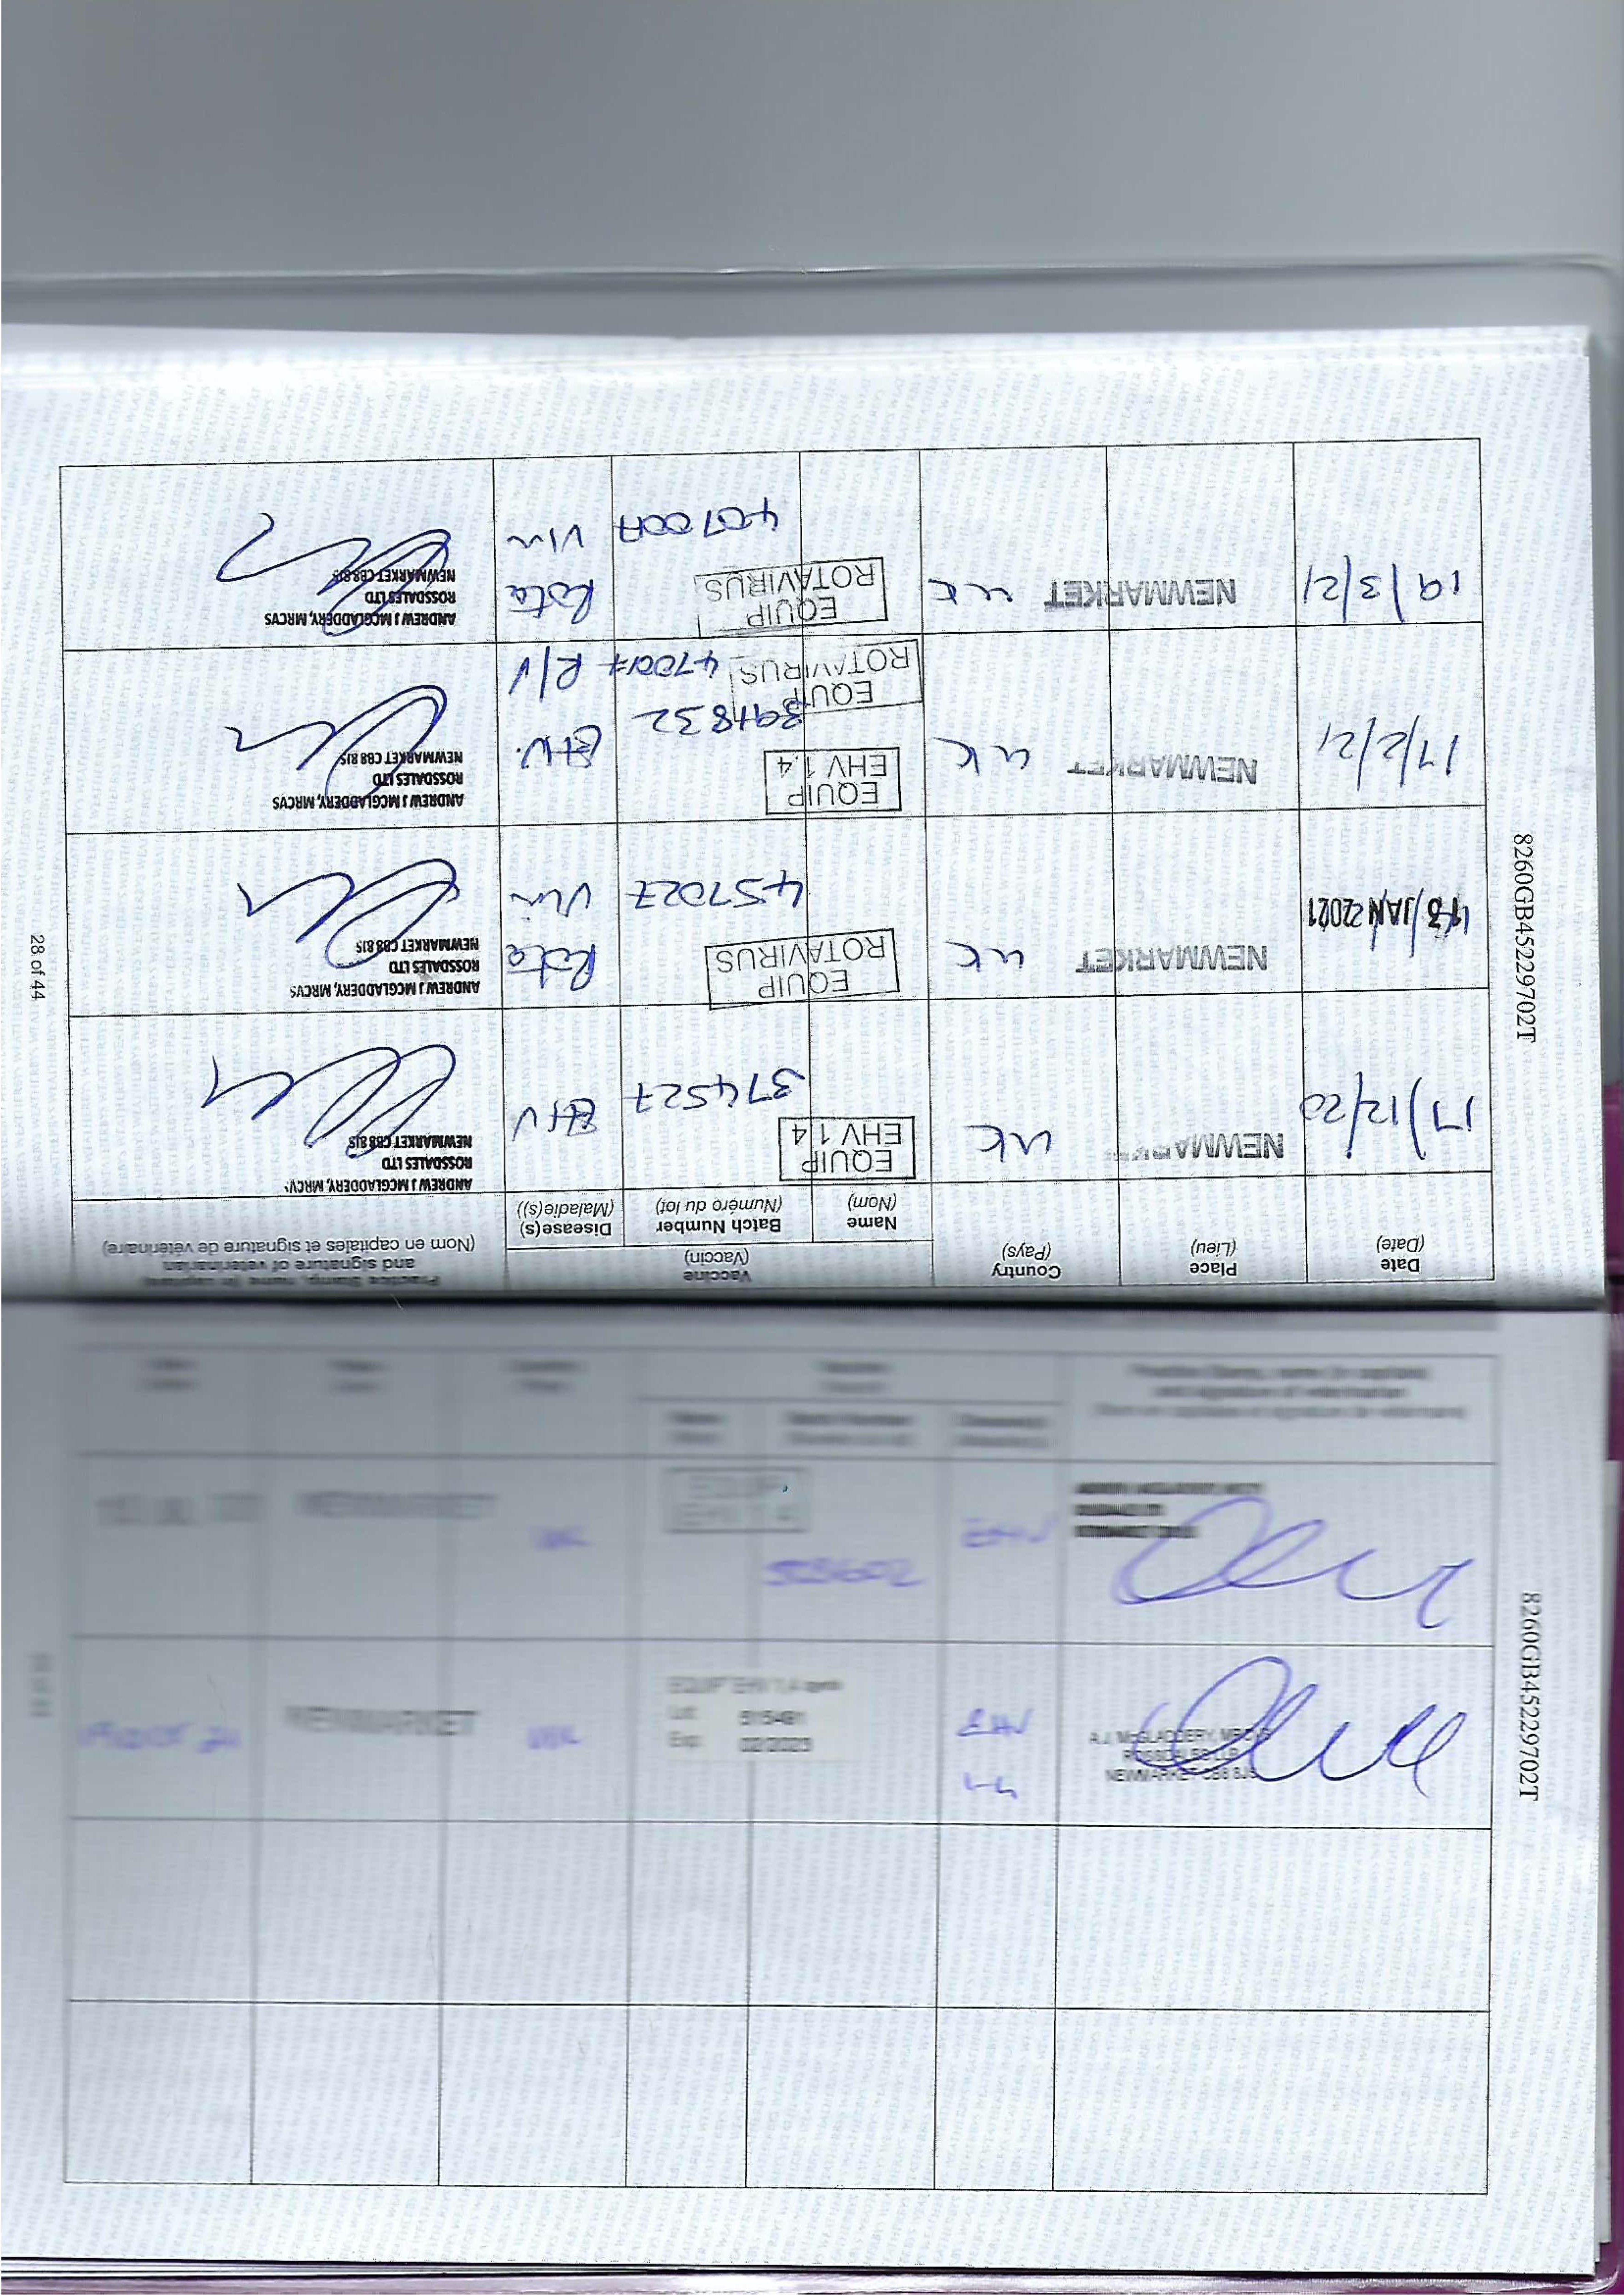 8260GB45229702T
28 of 44
Date
(Date)
Place
(Lieu)
Country
(Pays)
Vaccine
(Vaccin)
Name
(Nom)
Batch Number
(Numéro du lot)
Disease(s)
(Maladie(s))
Practice Stamp, name (in capitals)
and signature of veterinarian
(Nom en capitales et signature de vétérinaire)
17/12/20
NEWMARKET
UK
EQUIP
EHV 1.4
374527
EHV
ANDREW J MCGLADDERY, MRCVS
ROSSDALES LTD
NEWMARKET CB8 8JS
JAN 2021
NEWMARKET
UK
EQUIP
ROTAVIRUS
457027
Rota
Vir
ANDREW J MCGLADDERY, MRCVS
ROSSDALES LTD
NEWMARKET CB8 8JS
17/2/21
NEWMARKET
UK
EQUIP
EHV 1.4
391832
EHV.
EQUIP
ROTAVIRUS
R/V
ANDREW J MCGLADDERY, MRCVS
ROSSDALES LTD
NEWMARKET CB8 8JS
19/3/21
NEWMARKET
UK
EQUIP
ROTAVIRUS
Rota
Vir
ANDREW J MCGLADDERY, MRCVS
ROSSDALES LTD
NEWMARKET CB8 8JS
8260GB45229702T
NEWMARKET
UK
EQUIP
EHV 1.4
528602
EHV
NEWMARKET
UK
EQUIP EHV 1,4
Lot 515481
Exp 02/2023
EHV
1-4
A.J. McGLADDERY, MRCVS
ROSSDALES LLP
NEWMARKET CB8 8JS